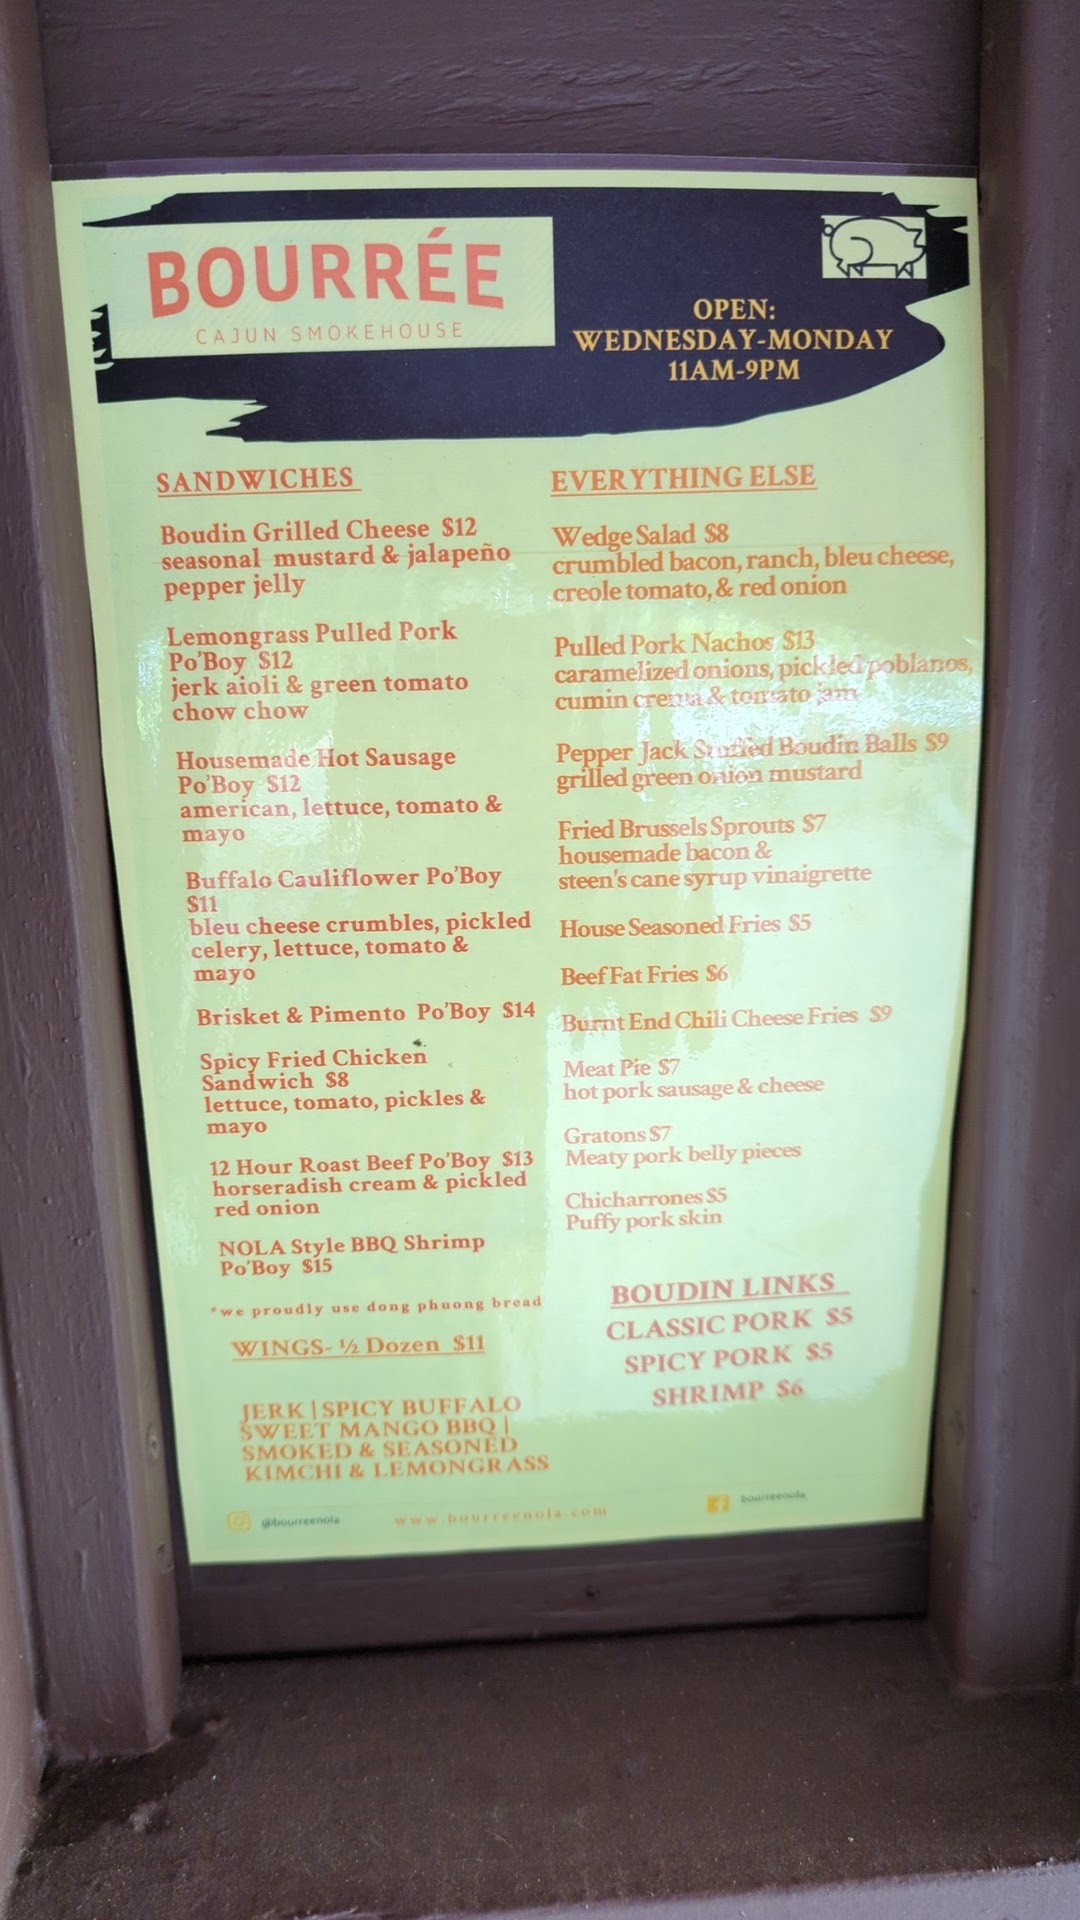 BOURRÉE
CAJUN SMOKEHOUSE
OPEN:
WEDNESDAY-MONDAY
11AM-9PM
SANDWICHES
Boudin Grilled Cheese $12
seasonal mustard & jalapeño
pepper jelly
Lemongrass Pulled Pork
Po'Boy $12
jerk aioli & green tomato
chow chow
Housemade Hot Sausage
Po'Boy $12
american, lettuce, tomato &
mayo
Buffalo Cauliflower Po'Boy
$11
bleu cheese crumbles, pickled
celery, lettuce, tomato &
mayo
Brisket & Pimento Po'Boy $14
Spicy Fried Chicken
Sandwich $8
lettuce, tomato, pickles &
mayo
12 Hour Roast Beef Po'Boy $13
horseradish cream & pickled
red onion
NOLA Style BBQ Shrimp
Po'Boy $15
*we proudly use dong phuong bread
WINGS- ½ Dozen $11
JERK | SPICY BUFFALO
SWEET MANGO BBQ |
SMOKED & SEASONED
KIMCHI & LEMONGRASS
EVERYTHING ELSE
Wedge Salad $8
crumbled bacon, ranch, bleu cheese,
creole tomato, & red onion
Pulled Pork Nachos $13
caramelized onions, pickled poblanos,
cumin crema & tomato jam
Pepper Jack Stuffed Boudin Balls $9
grilled green onion mustard
Fried Brussels Sprouts $7
housemade bacon &
steen's cane syrup vinaigrette
House Seasoned Fries $5
Beef Fat Fries $6
Burnt End Chili Cheese Fries $9
Meat Pie $7
hot pork sausage & cheese
Gratons $7
Meaty pork belly pieces
Chicharrones $5
Puffy pork skin
BOUDIN LINKS
CLASSIC PORK $5
SPICY PORK $5
SHRIMP $6
@bourreenola
www.bourreenola.com
bourreenola